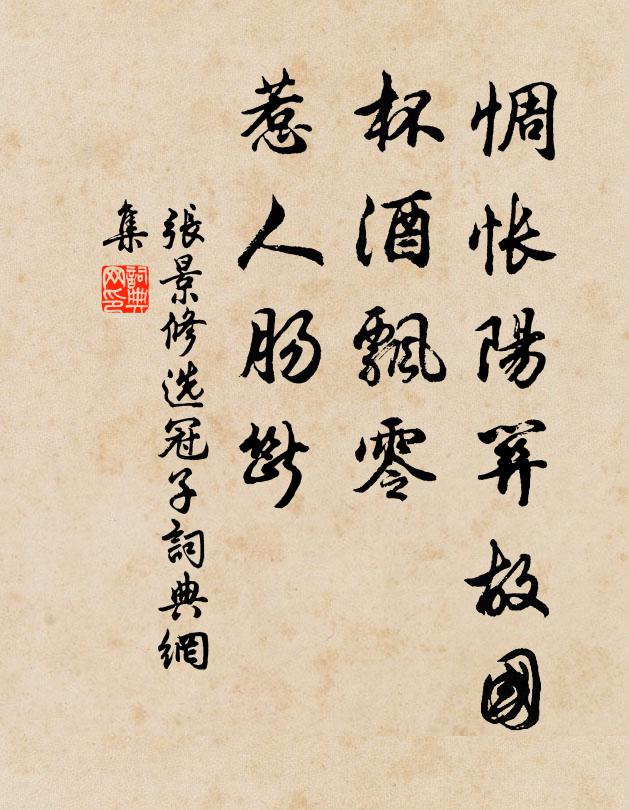 惆悵陽關故國
杯酒飄零
惹人腸斷
張景修選冠子詞典網
集
詞典網印